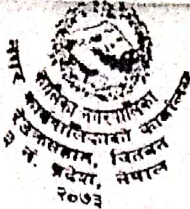 कालिका नगरपालिका
नगर कार्यपालिकाको कार्यालय
चितवन
प्रदेश, नेपाल
२०७३